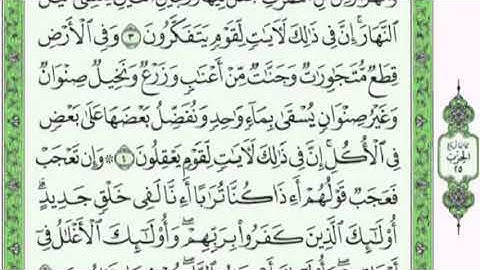 ٱلنَّهَارَ ۚ إِنَّ فِى ذَٰلِكَ لَءَايَٰتٍ لِّقَوْمٍ يَتَفَكَّرُونَ ٣ وَفِى ٱلْأَرْضِ
قِطَعٌ مُّتَجَٰوِرَٰتٌ وَجَنَّٰتٌ مِّنْ أَعْنَٰبٍ وَزَرْعٌ وَنَخِيلٌ صِنْوَانٌ
وَغَيْرُ صِنْوَانٍ يُسْقَىٰ بِمَآءٍ وَٰحِدٍ وَنُفَضِّلُ بَعْضَهَا عَلَىٰ بَعْضٍ
فِى ٱلْأُكُلِ ۚ إِنَّ فِى ذَٰلِكَ لَءَايَٰتٍ لِّقَوْمٍ يَعْقِلُونَ ٤ ۞ وَإِن تَعْجَبْ
فَعَجَبٌ قَوْلُهُمْ أَءِذَا كُنَّا تُرَٰبًا أَءِنَّا لَفِى خَلْقٍ جَدِيدٍ ۗ
أُو۟لَٰٓئِكَ ٱلَّذِينَ كَفَرُوا۟ بِرَبِّهِمْ ۖ وَأُو۟لَٰٓئِكَ ٱلْأَغْلَٰلُ فِىٓ
الحزب
٢٥